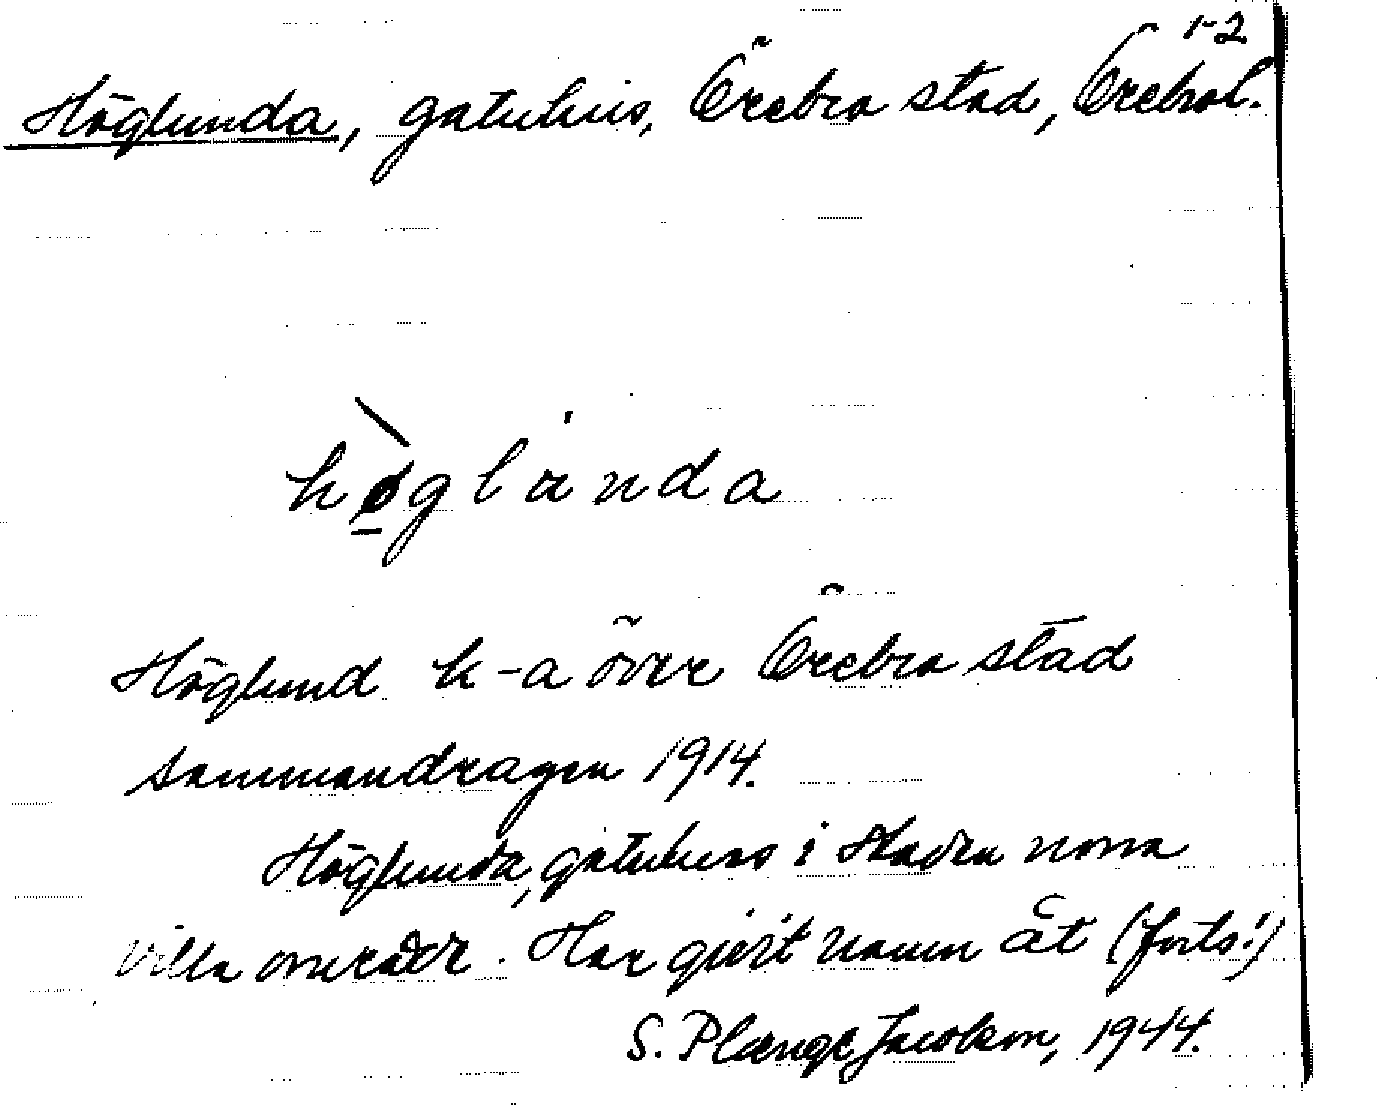 1-2
Höglunda, gatuhus, Örebro stad, Örebrol.
høglunda
Höglund k-a över Örebro stad
sammandragen 1914.
Höglunda, gatuhus i stadens norra
villaområde. Har givit namn åt (forts!)
S. Plænge Jacobson, 1944.